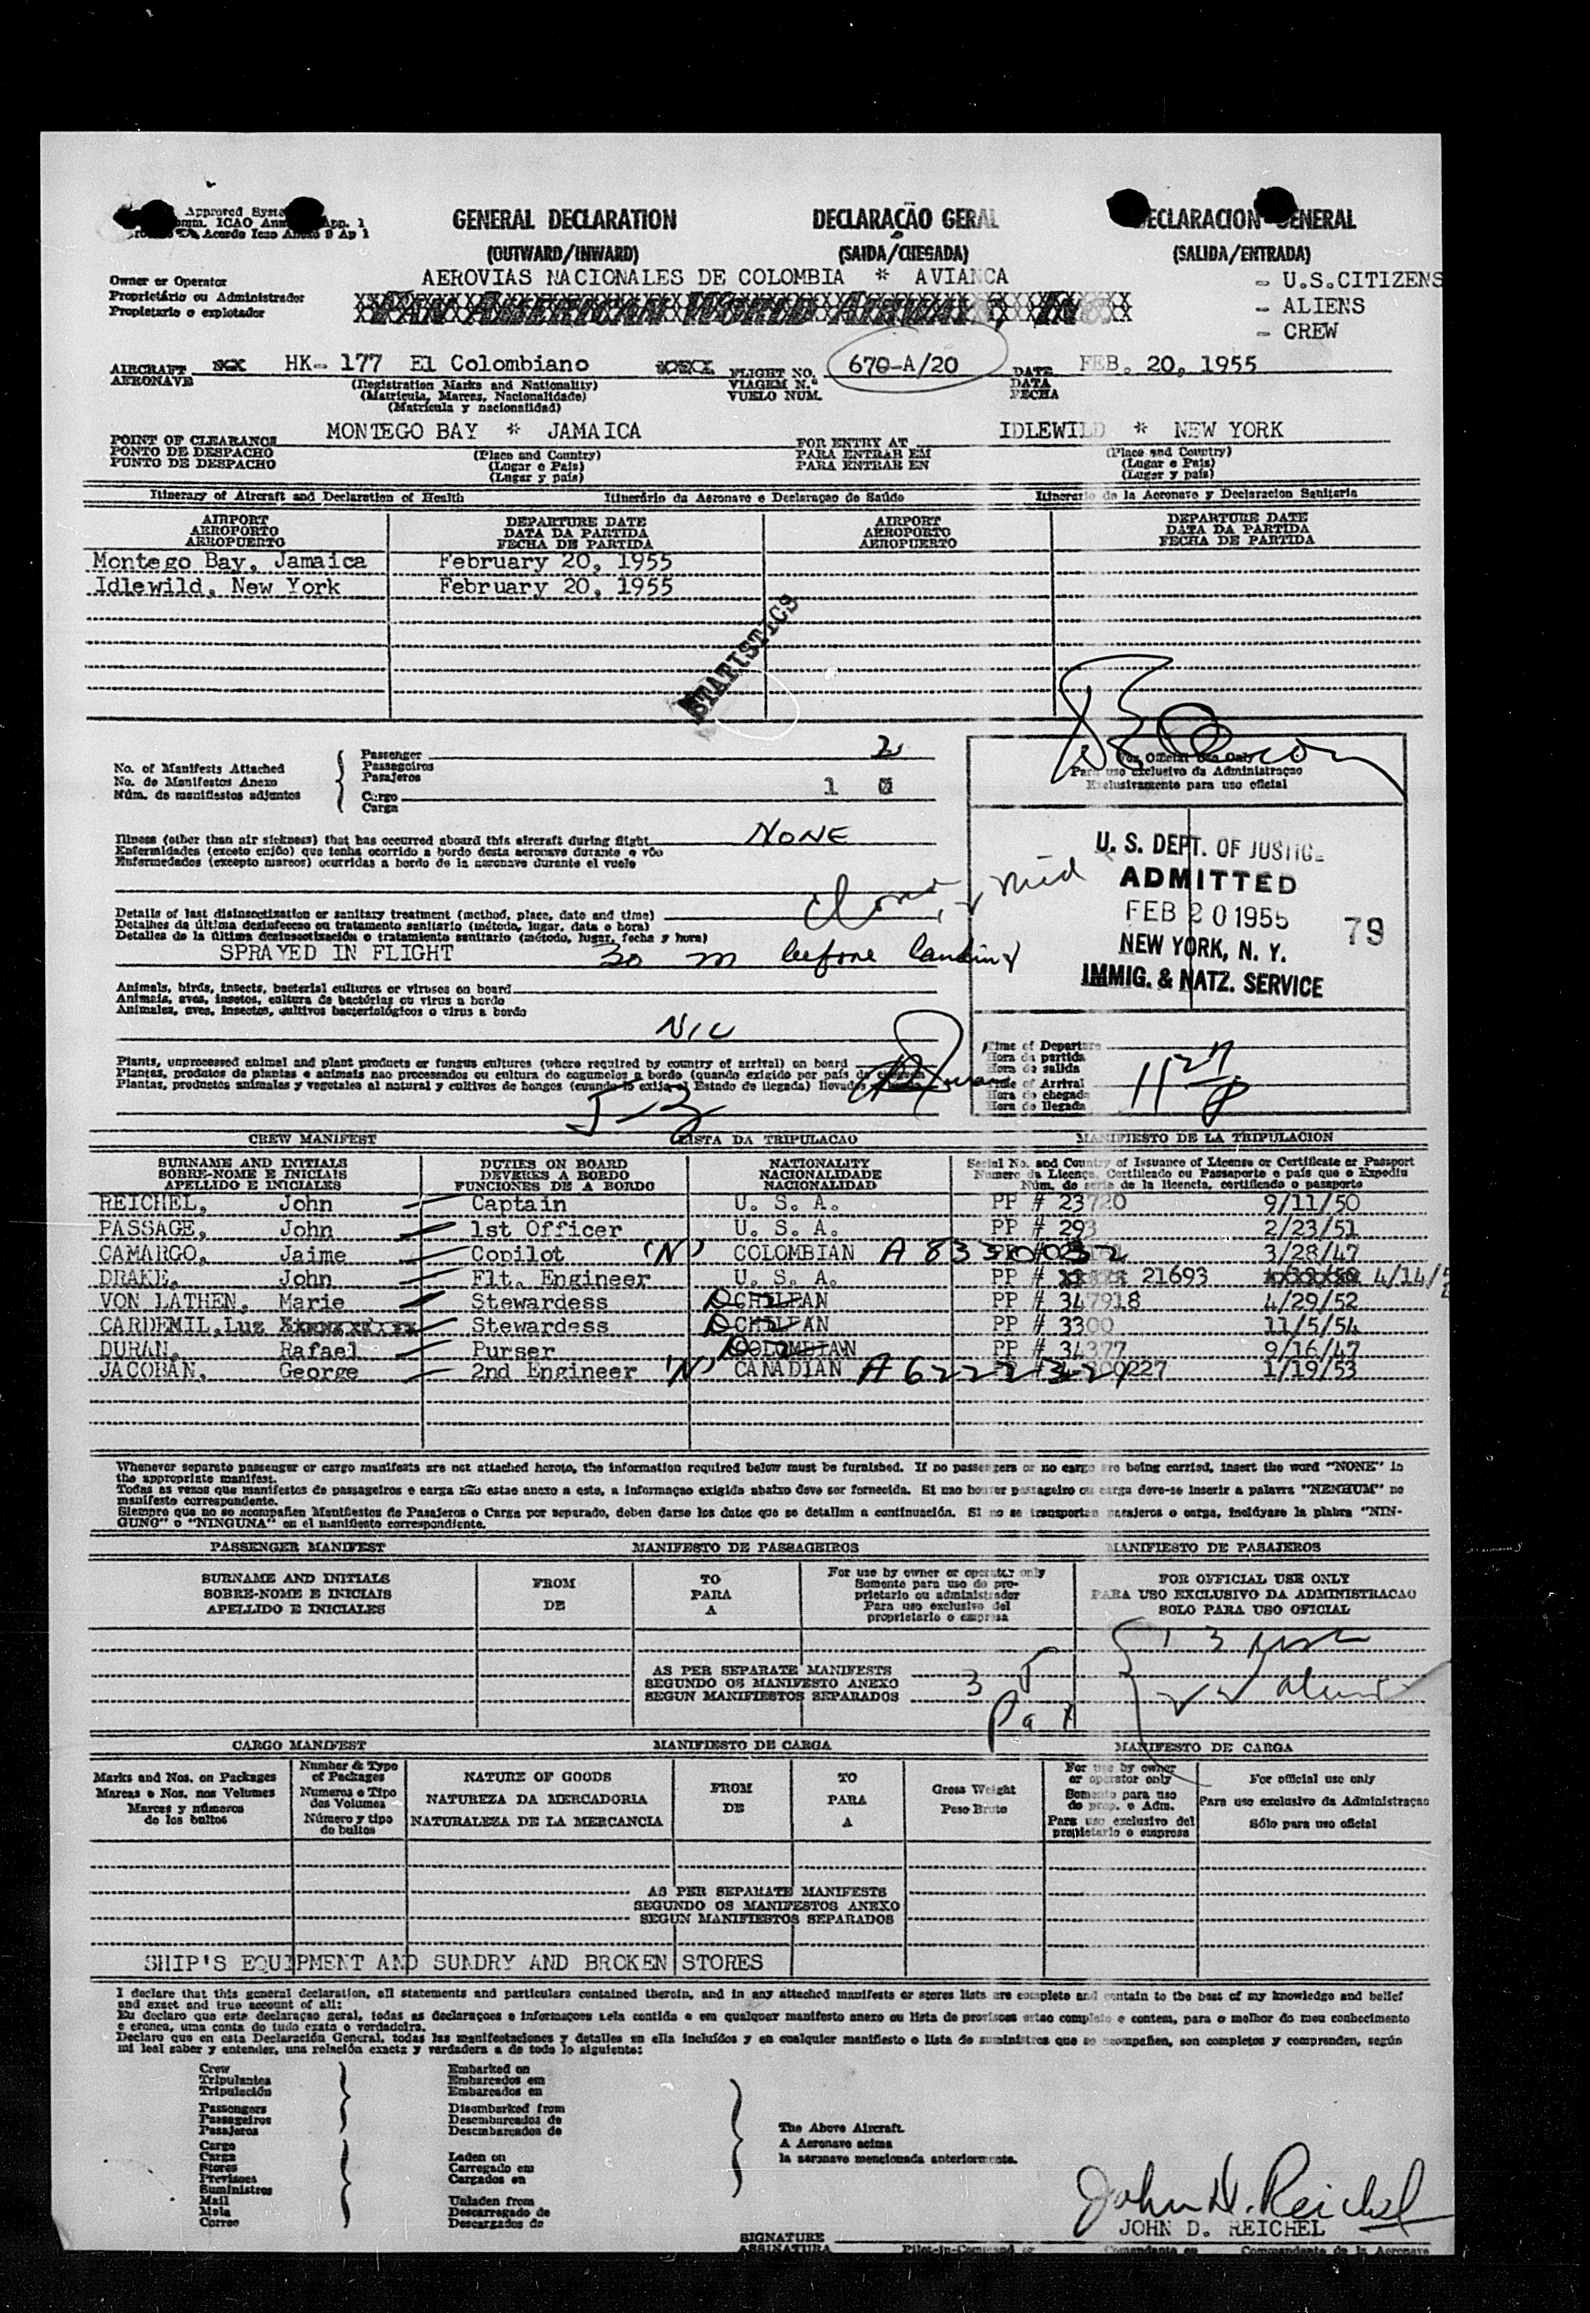 Approved Syste
omm. ICAO Ann App. 1
Acordo Icao Anexo 9 Ap 1
GENERAL DECLARATION DECLARAÇÃO GERAL DECLARACION GENERAL
(OUTWARD/INWARD) (SAIDA/CHEGADA) (SALIDA/ENTRADA)
Owner or Operator AEROVIAS NACIONALES DE COLOMBIA * AVIANCA
Proprietário ou Administrador PAN AMERICAN WORLD AIRWAYS, IN
Propietario o explotador
- U.S.CITIZENS
- ALIENS
- CREW
AIRCRAFT HK- 177 El Colombiano FLIGHT NO. 670-A/20 DATE FEB. 20, 1955
AERONAVE (Registration Marks and Nationality) VIAGEM N.º DATA
(Matricula, Marcas, Nacionalidade) VUELO NUM. FECHA
(Matricula y nacionalidad)
POINT OF CLEARANCE MONTEGO BAY * JAMAICA FOR ENTRY AT IDLEWILD * NEW YORK
PONTO DE DESPACHO (Place and Country) PARA ENTRAR EM (Place and Country)
PUNTO DE DESPACHO (Lugar e Pais) PARA ENTRAR EN (Lugar e Pais)
(Lugar y pais) (Lugar y pais)
Itinerary of Aircraft and Declaration of Health Itinerário da Aeronave e Declaraçao de Saúde Itinerario de la Aeronave y Declaracion Sanitaria
AIRPORT DEPARTURE DATE AIRPORT DEPARTURE DATE
AEROPORTO DATA DA PARTIDA AEROPORTO DATA DA PARTIDA
AEROPUERTO FECHA DE PARTIDA AEROPUERTO FECHA DE PARTIDA
Montego Bay, Jamaica February 20, 1955
Idlewild, New York February 20, 1955
STATISTICS
No. of Manifests Attached Passenger 2
No. de Manifestos Anexo Passageiros
Núm. de manifiestos adjuntos Pasajeros
Cargo 1
Carga
For Official Use Only
Para uso exclusivo da Administraçao
Exclusivamente para uso oficial
Illness (other than air sickness) that has occurred aboard this aircraft during flight NONE
Enfermidades (exceto enjôo) que tenha ocorrido a bordo desta aeronave durante o vôo
Enfermedades (excepto mareos) ocurridas a bordo de la aeronave durante el vuelo
U. S. DEPT. OF JUSTICE
ADMITTED
FEB 20 1955 79
NEW YORK, N. Y.
IMMIG. & NATZ. SERVICE
Details of last disinsectization or sanitary treatment (method, place, date and time)
Detalhes da última desinfeccao ou tratamento sanitario (método, lugar, data e hora)
Detalles de la última desinsectización o tratamiento sanitario (método, lugar, fecha y hora)
SPRAYED IN FLIGHT 30 m before landing
Animals, birds, insects, bacterial cultures or viruses on board
Animais, aves, insetos, cultura de bactérias ou virus a bordo
Animales, aves, insectos, cultivos bacteriológicos o virus a bordo
NIL
Plants, unprocessed animal and plant products or fungus cultures (where required by country of arrival) on board
Plantas, produtos de plantas e animais nao processados ou cultura de cogumelos a bordo (quando exigido por país de chegada
Plantas, productos animales y vegetales al natural y cultivos de hongos (cuando lo exija el Estado de llegada) llevados
Time of Departure
Hora da partida
Hora de salida
Time of Arrival
Hora de chegada
Hora de llegada
CREW MANIFEST LISTA DA TRIPULACAO MANIFIESTO DE LA TRIPULACION
SURNAME AND INITIALS DUTIES ON BOARD NATIONALITY Serial No. and Country of Issuance of License or Certificate or Passport
SOBRE-NOME E INICIAIS DEVERES A BORDO NACIONALIDADE Numero da Licença, Certificado ou Passaporte e país que o Expediu
APELLIDO E INICIALES FUNCIONES DE A BORDO NACIONALIDAD Núm. de serie de la licencia, certificado o pasaporte
REICHEL, John Captain U. S. A. PP # 23720 9/11/50
PASSAGE, John 1st Officer U. S. A. PP # 293 2/23/51
CAMARGO, Jaime Copilot (N) COLOMBIAN 3/28/47
DRAKE, John Flt. Engineer U. S. A. PP # 21693 4/14/
VON LATHEN, Marie Stewardess CHILEAN PP # 347918 4/29/52
CARDEMIL, Luz Stewardess CHILEAN PP # 3300 11/5/54
DURAN, Rafael Purser COLOMBIAN PP # 34377 9/16/47
JACOBAN, George 2nd Engineer (N) CANADIAN 1/19/53
Whenever separate passenger or cargo manifests are not attached hereto, the information required below must be furnished. If no passengers or no cargo are being carried, insert the word "NONE" in
the appropriate manifest.
Todas as vezes que manifestos de passageiros e carga não estao anexo a este, a informaçao exigida abaixo deve ser fornecida. Si nao houver passageiro ou carga deve-se inserir a palavra "NENHUM" no
manifesto correspondente.
Siempre que no se acompañen Manifiestos de Pasajeros o Carga por separado, deben darse los datos que se detallan a continuación. Si no se transportan pasajeros o carga, inclúyase la plabra "NIN-
GUNO" o "NINGUNA" en el manifiesto correspondiente.
PASSENGER MANIFEST MANIFESTO DE PASSAGEIROS MANIFIESTO DE PASAJEROS
SURNAME AND INITIALS FROM TO For use by owner or operator only FOR OFFICIAL USE ONLY
SOBRE-NOME E INICIAIS DE PARA Somente para uso do pro- PARA USO EXCLUSIVO DA ADMINISTRACAO
APELLIDO E INICIALES A prietario ou administrador SOLO PARA USO OFICIAL
Para uso exclusivo del
proprietario o empresa
AS PER SEPARATE MANIFESTS
SEGUNDO OS MANIFESTO ANEXO 3 5
SEGUN MANIFIESTOS SEPARADOS Pax
CARGO MANIFEST MANIFIESTO DE CARGA MANIFESTO DE CARGA
Marks and Nos. on Packages Number & Type of Packages NATURE OF GOODS FROM TO Gross Weight For use by owner or operator only For official use only
Marcas e Nos. nos Volumes Numeros e Tipo dos Volumes NATUREZA DA MERCADORIA DE PARA Peso Bruto Somento para uso do prop. e Adm. Para uso exclusivo da Administraçao
Marcas y números de los bultos Número y tipo de bultos NATURALEZA DE LA MERCANCIA A Para uso exclusivo del propietario o empresa Sólo para uso oficial
AS PER SEPARATE MANIFESTS
SEGUNDO OS MANIFESTOS ANEXO
SEGUN MANIFIESTOS SEPARADOS
SHIP'S EQUIPMENT AND SUNDRY AND BROKEN STORES
I declare that this general declaration, all statements and particulars contained therein, and in any attached manifests or stores lists are complete and contain to the best of my knowledge and belief
and exact and true account of all:
Eu declaro que este declaraçao geral, todas as declaraçoes e informaçoes nela contida e em qualquer manifesto anexo ou lista de provisoes estao completo e contem, para o melhor do meu conhecimento
e crenca, uma conta de tudo exata e verdadeira.
Declaro que en esta Declaración General, todas las manifestaciones y detalles en ella incluídos y en cualquier manifiesto o lista de suministros que se acompañen, son completos y comprenden, según
mi leal saber y entender, una relación exacta y verdadera a de todo lo siguiente:
Crew Embarked on
Tripulantes Embarcados em
Tripulación Embarcados en
Passengers Disembarked from
Passageiros Desembarcados de
Pasajeros Desembarcados de
The Above Aircraft.
A Aeronave acima
la aeronave mencionada anteriormente.
Cargo
Carga Laden on
Stores Carregado em
Previsoes Cargados en
Suministros
Mail Unladen from
Mala Descarregado de
Correo Descargados de
John D. Reichel
JOHN D. REICHEL
SIGNATURE
ASSINATURA Pilot-in-Command or Comandante en Commandante de la Aeronave